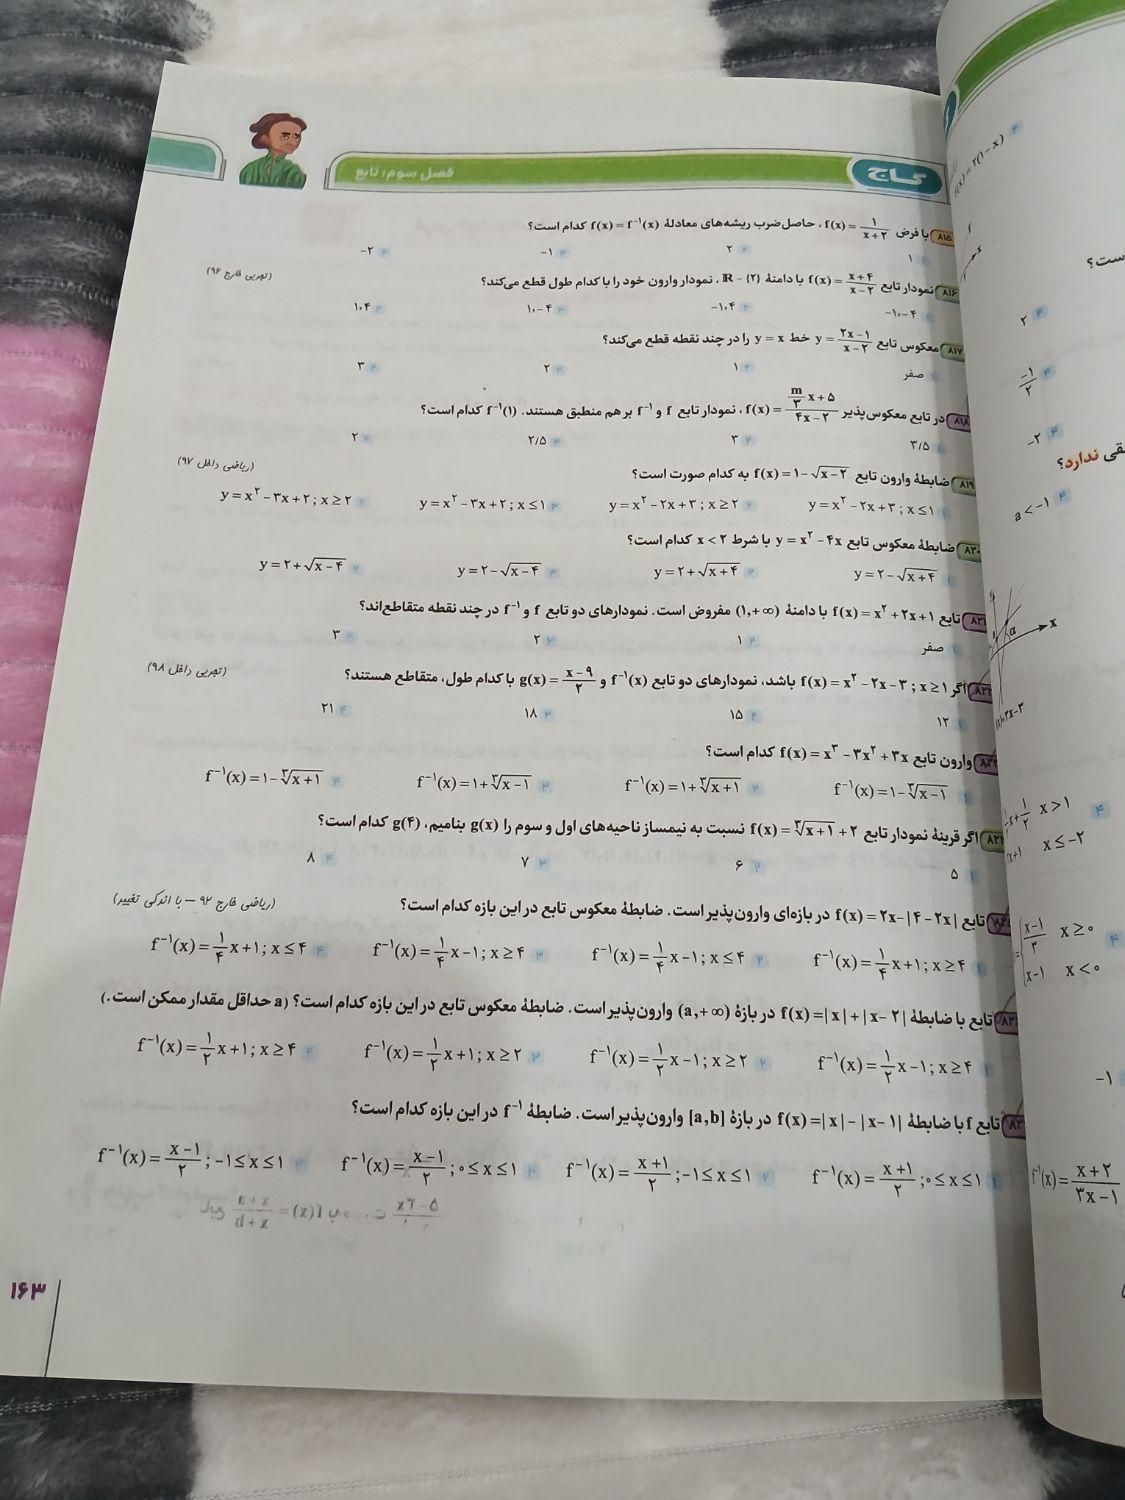 فصل سوم: تابع
گاج
۸۱۵ با فرض f(x) = ۱/(x+۲)، حاصل‌ضرب ریشه‌های معادلهٔ f(x) = f⁻¹(x) کدام است؟
۱) ۱ ۲) ۲ ۳) -۱ ۴) -۲
۸۱۶ نمودار تابع f(x) = (x+۴)/(x-۲) با دامنهٔ ℝ - {۲}، نمودار وارون خود را با کدام طول قطع می‌کند؟ (تجربی خارج ۹۶)
۱) -۱, -۴ ۲) -۱, ۴ ۳) ۱, -۴ ۴) ۱, ۴
۸۱۷ معکوس تابع y = (۲x-۱)/(x-۲) خط y = x را در چند نقطه قطع می‌کند؟
۱) صفر ۲) ۱ ۳) ۲ ۴) ۳
۸۱۸ در تابع معکوس‌پذیر f(x) = ((m/۳)x+۵)/(۴x-۲)، نمودار تابع f و f⁻¹ بر هم منطبق هستند. f⁻¹(۱) کدام است؟
۱) ۳/۵ ۲) ۳ ۳) ۲/۵ ۴) ۲
۸۱۹ ضابطهٔ وارون تابع f(x) = ۱-√(x-۲) به کدام صورت است؟ (ریاضی داخل ۹۷)
۱) y = x²-۲x+۳ ; x≤۱ ۲) y = x²-۲x+۳ ; x≥۲ ۳) y = x²-۳x+۲ ; x≤۱ ۴) y = x²-۳x+۲ ; x≥۲
۸۲۰ ضابطهٔ معکوس تابع y = x²-۴x با شرط x<۲ کدام است؟
۱) y = ۲-√(x+۴) ۲) y = ۲+√(x+۴) ۳) y = ۲-√(x-۴) ۴) y = ۲+√(x-۴)
تابع f(x) = x²+۲x+۱ با دامنهٔ (۱,+∞) مفروض است. نمودارهای دو تابع f و f⁻¹ در چند نقطه متقاطع‌اند؟
۱) صفر ۲) ۱ ۳) ۲ ۴) ۳
اگر f(x) = x²-۲x-۳ ; x≥۱ باشد، نمودارهای دو تابع f⁻¹(x) و g(x) = (x-۹)/۲ با کدام طول، متقاطع هستند؟ (تجربی داخل ۹۸)
۱) ۱۲ ۲) ۱۵ ۳) ۱۸ ۴) ۲۱
وارون تابع f(x) = x³-۳x²+۳x کدام است؟
۱) f⁻¹(x) = ۱-∛(x-۱) ۲) f⁻¹(x) = ۱+∛(x+۱) ۳) f⁻¹(x) = ۱+∛(x-۱) ۴) f⁻¹(x) = ۱-∛(x+۱)
اگر قرینهٔ نمودار تابع f(x) = ∛(x+۱)+۲ نسبت به نیمساز ناحیه‌های اول و سوم را g(x) بنامیم، g(۴) کدام است؟
۱) ۵ ۲) ۶ ۳) ۷ ۴) ۸
تابع f(x) = ۲x-|۴-۲x| در بازه‌ای وارون‌پذیر است. ضابطهٔ معکوس تابع در این بازه کدام است؟ (ریاضی خارج ۹۲ – با اندکی تغییر)
۱) f⁻¹(x) = ۱/۴x+۱ ; x≥۴ ۲) f⁻¹(x) = ۱/۴x-۱ ; x≤۴ ۳) f⁻¹(x) = ۱/۴x-۱ ; x≥۴ ۴) f⁻¹(x) = ۱/۴x+۱ ; x≤۴
تابع با ضابطهٔ f(x) = |x|+|x-۲| در بازهٔ (a,+∞) وارون‌پذیر است. ضابطهٔ معکوس تابع در این بازه کدام است؟ (a حداقل مقدار ممکن است.)
۱) f⁻¹(x) = ۱/۲x-۱ ; x≥۴ ۲) f⁻¹(x) = ۱/۲x-۱ ; x≥۲ ۳) f⁻¹(x) = ۱/۲x+۱ ; x≥۲ ۴) f⁻¹(x) = ۱/۲x+۱ ; x≥۴
تابع f با ضابطهٔ f(x) = |x|-|x-۱| در بازهٔ [a,b] وارون‌پذیر است. ضابطهٔ f⁻¹ در این بازه کدام است؟
۱) f⁻¹(x) = (x+۱)/۲ ; ۰≤x≤۱ ۲) f⁻¹(x) = (x+۱)/۲ ; -۱≤x≤۱ ۳) f⁻¹(x) = (x-۱)/۲ ; ۰≤x≤۱ ۴) f⁻¹(x) = (x-۱)/۲ ; -۱≤x≤۱
۱۶۳
f(x) = ۲(۱-x)
است؟
۴) ۲
۴) -۱/۲
۴) -۲
ندارد؟
۴) a<-۱
x>۱
x≤-۲
(x-۱)/۳ x≥۰
x-۱ x<۰
-۱
f⁻¹(x) = (x+۲)/(۳x-۱)